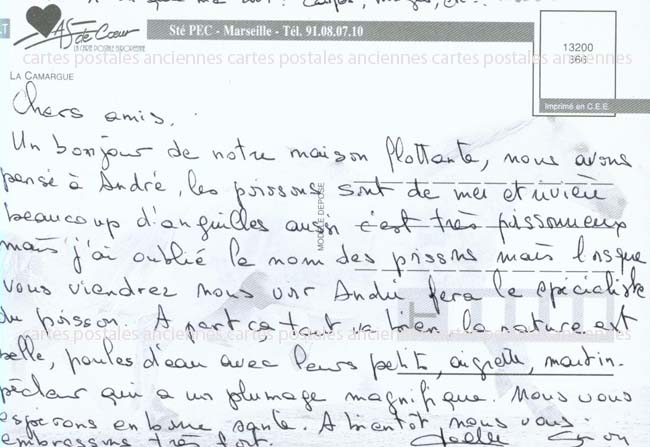 AS de Cœur
LA CARTE POSTALE EUROPEENNE
Sté PEC - Marseille - Tél. 91.08.07.10
13200
366
Imprimé en C.E.E.
cartes postales anciennes cartes postales anciennes cartes postales anciennes
LA CAMARGUE
MODELE DEPOSE
Chers amis.
Un bonjour de notre maison flottante, nous avons
pensé à André, les poissons sont de mer et rivière
beaucoup d'anguilles aussi c'est très poissonneux
mais j'ai oublié le nom des poissons mais lorsque
vous viendrez nous voir André fera le spécialiste
du poisson. A part ça tout va bien la nature est
cartes postales anciennes cartes postales anciennes cartes postales anciennes
belle, poules d'eau avec leurs petits, aigrette, martin-
pêcheur qui a un plumage magnifique. Nous vous
espérons en bonne santé. A bientôt nous vous
embrassons très fort.